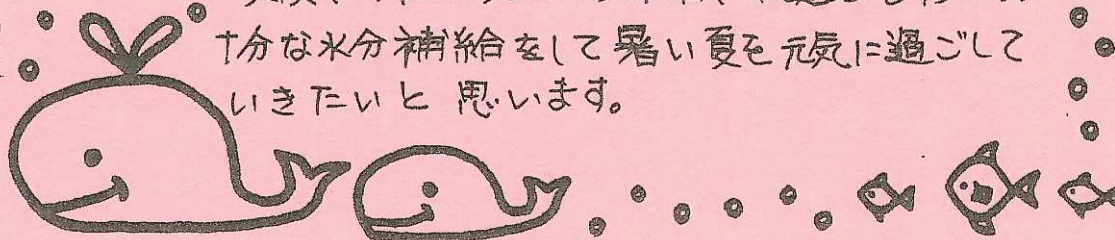 十分な水分補給をして暑い夏を元気に過ごして
いきたいと思います。